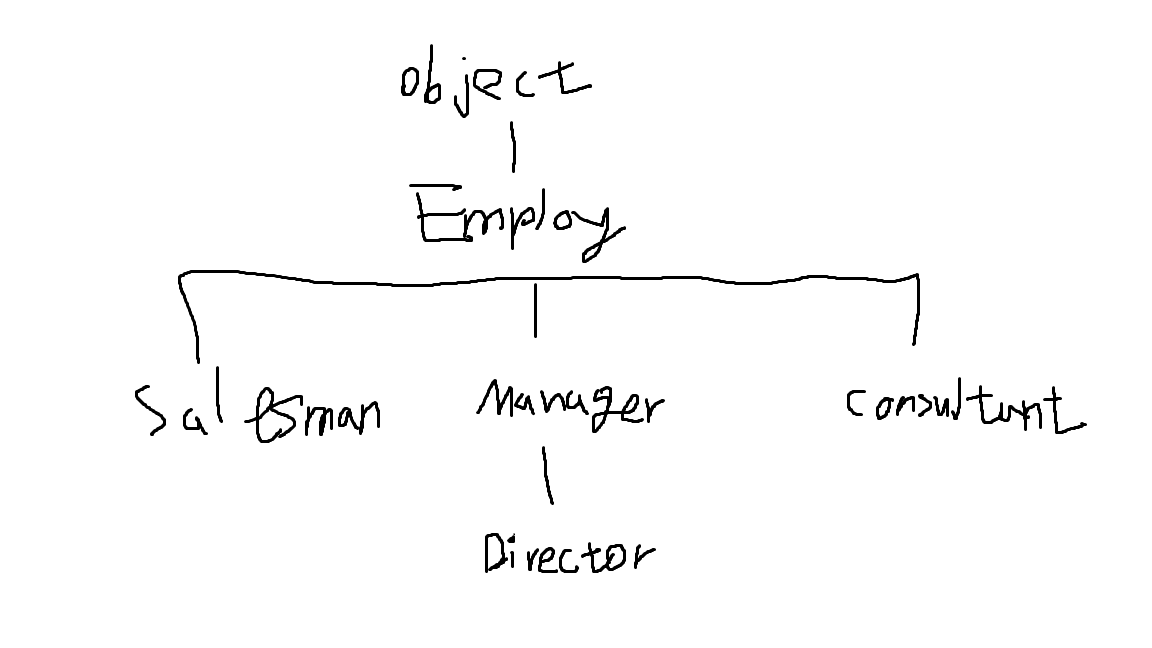 object
Employ
Salesman Manager Consultant
Director